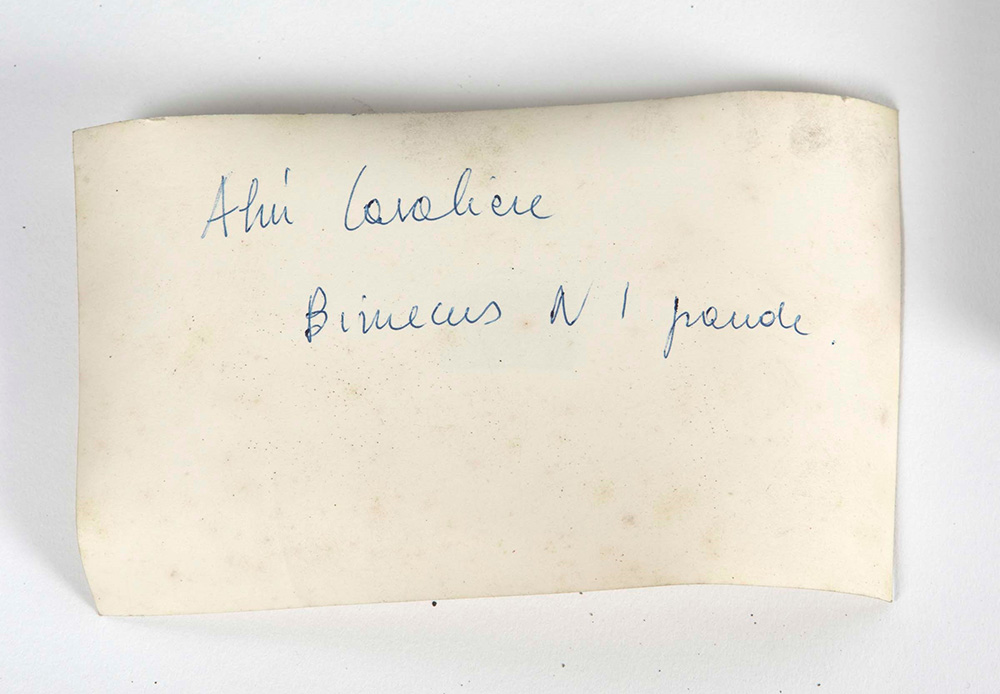 Alìú Cavaliere
Bimecus N 1 grande.